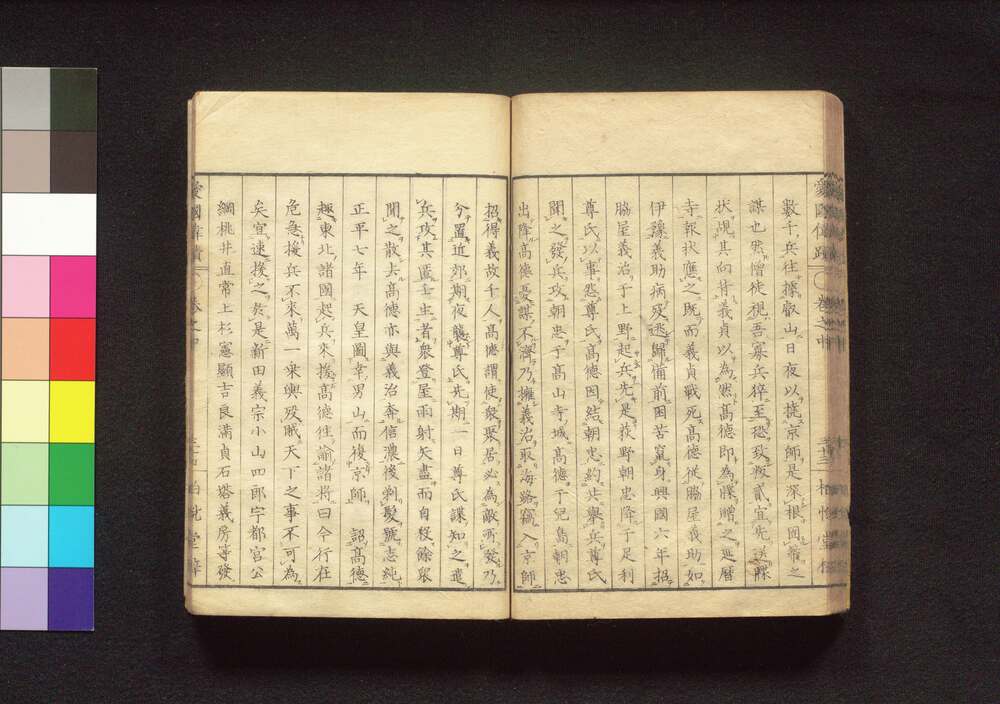 數千兵往據叡山日夜以撓京師是深根固蔕之
謀也然憎徒視吾寡兵猝至恐致叛貳宜先送牒
狀覘其向背義貞以為然高德即為牒贈之延曆
寺報狀應之既而義貞戰死高德從脇屋義助如
伊豫義助病歿逃歸備前困苦竄身興國六年招
脇屋義治于上野起兵先是荻野朝忠降于足利
尊氏以事怨尊氏高德因結朝忠約共舉兵尊氏
聞之發兵攻朝忠于高山寺城高德于兒島朝忠
出降高德憂謀不濟乃擁義治取海路竊入京師
招得義故千人高德謂使衆聚居必為敵所發乃
分置近郊期夜襲尊氏先期一日尊氏諜知之遣
兵攻其匿壬生者衆登屋雨射矢盡而自殺餘衆
聞之散去高德亦與義治奔信濃後剃髮號志純
正平七年 天皇圖幸男山而復京師 詔高德
趣東北諸國起兵來援高德往諭諸將曰今行在
危急援兵不來萬一乘輿歿賊天下之事不可為
矣宜速援之於是新田義宗小山四郎宇都宮公
綱桃井直常上杉憲顯吉良滿貞石塔義房等發
愛國偉績 卷之中